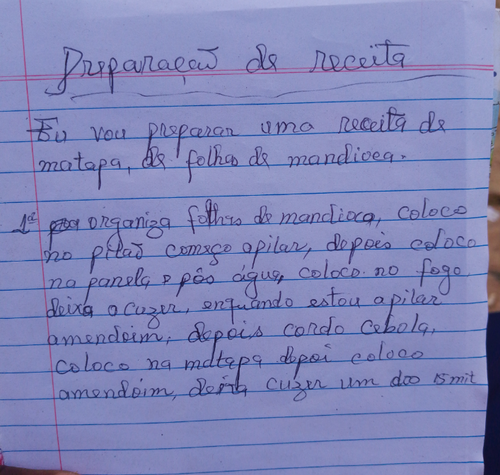 Preparação de receita
Eu vou preparar uma receita de
matapa, de folhas de mandioca.
1ª organiza folhas de mandioca, coloco
no pilão começo a pilar, depois coloco
na panela e pôs água, coloco no fogo
deixa a cuzer, enquando estou a pilar
amendoim, depois cordo cebola,
coloco na matapa depoi coloco
amendoim, deixa cuzer um doo 15 mit